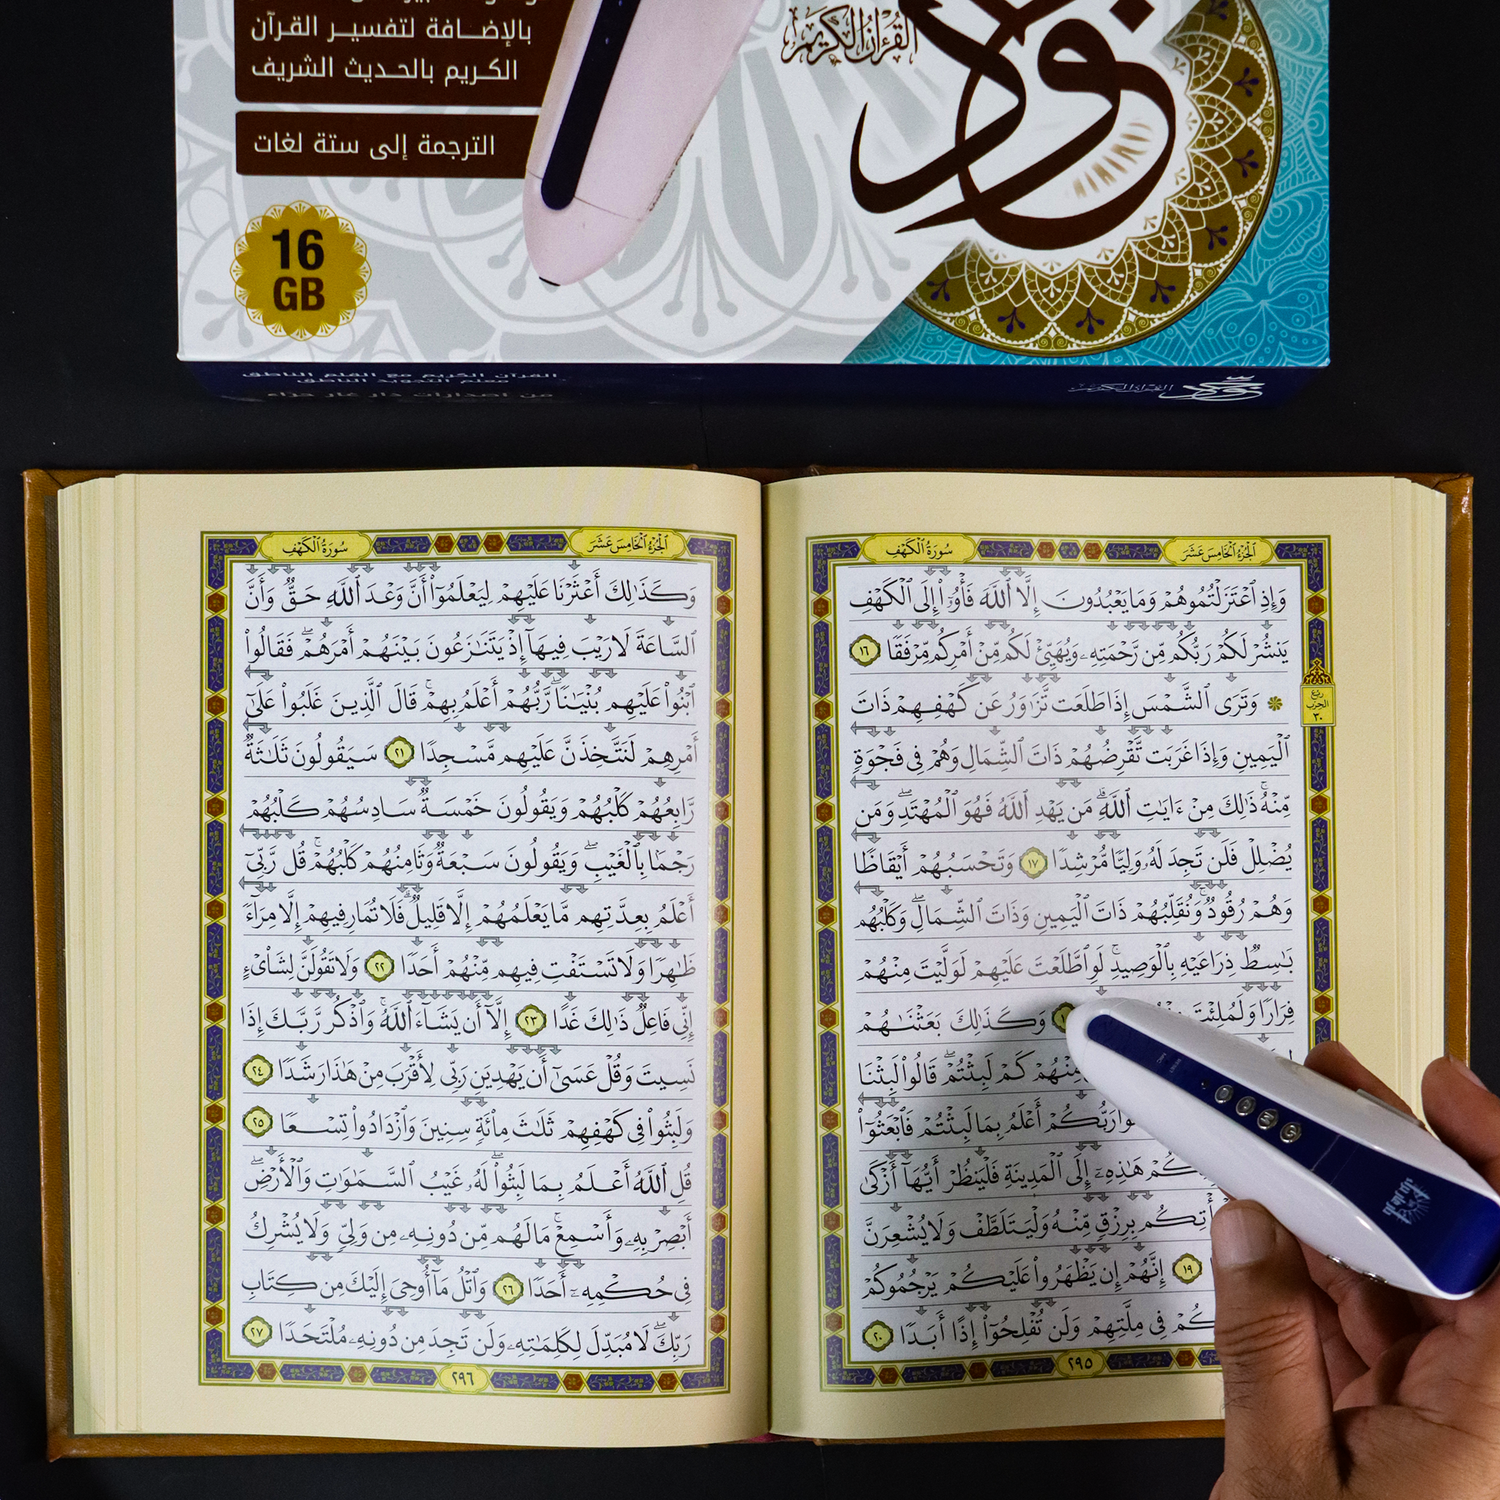 بالإضافة لتفسير القرآن
الكريم بالحديث الشريف
الترجمة إلى ستة لغات
16
GB
القرآن الكريم
نور
القرآن الكريم مع القلم الناطق
معلم التجويد الناطق
من اصدارات دار غار حراء
القرآن الكريم
الجزء الخامس عشر
سورة الكهف
وَإِذِ ٱعْتَزَلْتُمُوهُمْ وَمَا يَعْبُدُونَ إِلَّا ٱللَّهَ فَأْوُۥٓا۟ إِلَى ٱلْكَهْفِ
يَنشُرْ لَكُمْ رَبُّكُم مِّن رَّحْمَتِهِۦ وَيُهَيِّئْ لَكُم مِّنْ أَمْرِكُم مِّرْفَقًا ١٦
۞ وَتَرَى ٱلشَّمْسَ إِذَا طَلَعَت تَّزَٰوَرُ عَن كَهْفِهِمْ ذَاتَ
ربع
الحزب
٣٠
ٱلْيَمِينِ وَإِذَا غَرَبَت تَّقْرِضُهُمْ ذَاتَ ٱلشِّمَالِ وَهُمْ فِى فَجْوَةٍ
مِّنْهُ ۚ ذَٰلِكَ مِنْ ءَايَٰتِ ٱللَّهِ ۗ مَن يَهْدِ ٱللَّهُ فَهُوَ ٱلْمُهْتَدِ ۖ وَمَن
يُضْلِلْ فَلَن تَجِدَ لَهُۥ وَلِيًّا مُّرْشِدًا ١٧ وَتَحْسَبُهُمْ أَيْقَاظًا
وَهُمْ رُقُودٌ ۚ وَنُقَلِّبُهُمْ ذَاتَ ٱلْيَمِينِ وَذَاتَ ٱلشِّمَالِ ۖ وَكَلْبُهُم
بَٰسِطٌ ذِرَاعَيْهِ بِٱلْوَصِيدِ ۚ لَوِ ٱطَّلَعْتَ عَلَيْهِمْ لَوَلَّيْتَ مِنْهُمْ
فِرَارًا وَلَمُلِئْتَ وَكَذَٰلِكَ بَعَثْنَٰهُمْ
مِّنْهُمْ كَمْ لَبِثْتُمْ ۖ قَالُوا۟ لَبِثْنَا
رَبُّكُمْ أَعْلَمُ بِمَا لَبِثْتُمْ فَٱبْعَثُوٓا۟
هَٰذِهِۦٓ إِلَى ٱلْمَدِينَةِ فَلْيَنظُرْ أَيُّهَآ أَزْكَىٰ
بِرِزْقٍ مِّنْهُ وَلْيَتَلَطَّفْ وَلَا يُشْعِرَنَّ
١٩ إِنَّهُمْ إِن يَظْهَرُوا۟ عَلَيْكُمْ يَرْجُمُوكُمْ
فِى مِلَّتِهِمْ وَلَن تُفْلِحُوٓا۟ إِذًا أَبَدًا ٢٠
٢٩٥
الجزء الخامس عشر
سورة الكهف
وَكَذَٰلِكَ أَعْثَرْنَا عَلَيْهِمْ لِيَعْلَمُوٓا۟ أَنَّ وَعْدَ ٱللَّهِ حَقٌّ وَأَنَّ
ٱلسَّاعَةَ لَا رَيْبَ فِيهَآ إِذْ يَتَنَٰزَعُونَ بَيْنَهُمْ أَمْرَهُمْ ۖ فَقَالُوا۟
ٱبْنُوا۟ عَلَيْهِم بُنْيَٰنًا ۖ رَّبُّهُمْ أَعْلَمُ بِهِمْ ۚ قَالَ ٱلَّذِينَ غَلَبُوا۟ عَلَىٰٓ
أَمْرِهِمْ لَنَتَّخِذَنَّ عَلَيْهِم مَّسْجِدًا ٢١ سَيَقُولُونَ ثَلَٰثَةٌ
رَّابِعُهُمْ كَلْبُهُمْ وَيَقُولُونَ خَمْسَةٌ سَادِسُهُمْ كَلْبُهُمْ
رَجْمًۢا بِٱلْغَيْبِ ۖ وَيَقُولُونَ سَبْعَةٌ وَثَامِنُهُمْ كَلْبُهُمْ ۚ قُل رَّبِّىٓ
أَعْلَمُ بِعِدَّتِهِم مَّا يَعْلَمُهُمْ إِلَّا قَلِيلٌ ۗ فَلَا تُمَارِ فِيهِمْ إِلَّا مِرَآءً
ظَٰهِرًا وَلَا تَسْتَفْتِ فِيهِم مِّنْهُمْ أَحَدًا ٢٢ وَلَا تَقُولَنَّ لِشَا۟ىْءٍ
إِنِّى فَاعِلٌ ذَٰلِكَ غَدًا ٢٣ إِلَّآ أَن يَشَآءَ ٱللَّهُ ۚ وَٱذْكُر رَّبَّكَ إِذَا
نَسِيتَ وَقُلْ عَسَىٰٓ أَن يَهْدِيَنِ رَبِّى لِأَقْرَبَ مِنْ هَٰذَا رَشَدًا ٢٤
وَلَبِثُوا۟ فِى كَهْفِهِمْ ثَلَٰثَ مِا۟ئَةٍ سِنِينَ وَٱزْدَادُوا۟ تِسْعًا ٢٥
قُلِ ٱللَّهُ أَعْلَمُ بِمَا لَبِثُوا۟ ۖ لَهُۥ غَيْبُ ٱلسَّمَٰوَٰتِ وَٱلْأَرْضِ ۖ
أَبْصِرْ بِهِۦ وَأَسْمِعْ ۚ مَا لَهُم مِّن دُونِهِۦ مِن وَلِىٍّ وَلَا يُشْرِكُ
فِى حُكْمِهِۦٓ أَحَدًا ٢٦ وَٱتْلُ مَآ أُوحِىَ إِلَيْكَ مِن كِتَابِ
رَبِّكَ ۖ لَا مُبَدِّلَ لِكَلِمَٰتِهِۦ وَلَن تَجِدَ مِن دُونِهِۦ مُلْتَحَدًا ٢٧
٢٩٦